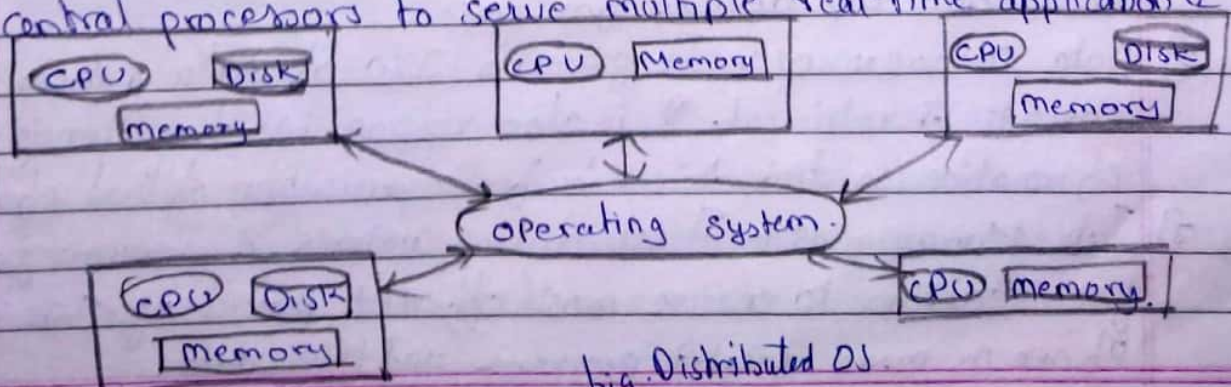 central processors to serve multiple real time application &
CPU Disk CPU Memory CPU Disk
memory memory
operating system.
CPU Disk CPU memory.
memory
fig. Distributed OS.